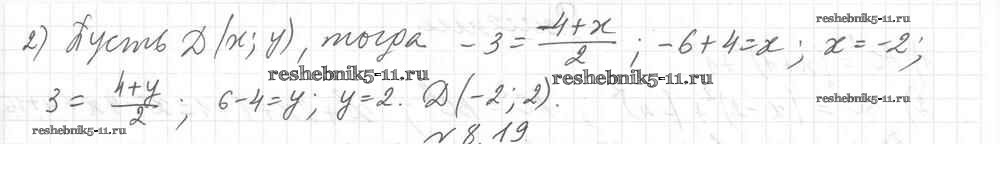 2) Пусть D(x; y), тогда -3 = (-4+x)/2 ; -6+4=x; x=-2;
reshebnik5-11.ru
reshebnik5-11.ru
reshebnik5-11.ru
3 = (4+y)/2 ; 6-4=y; y=2. D(-2; 2).
reshebnik5-11.ru
reshebnik5-11.ru
№ 8.19